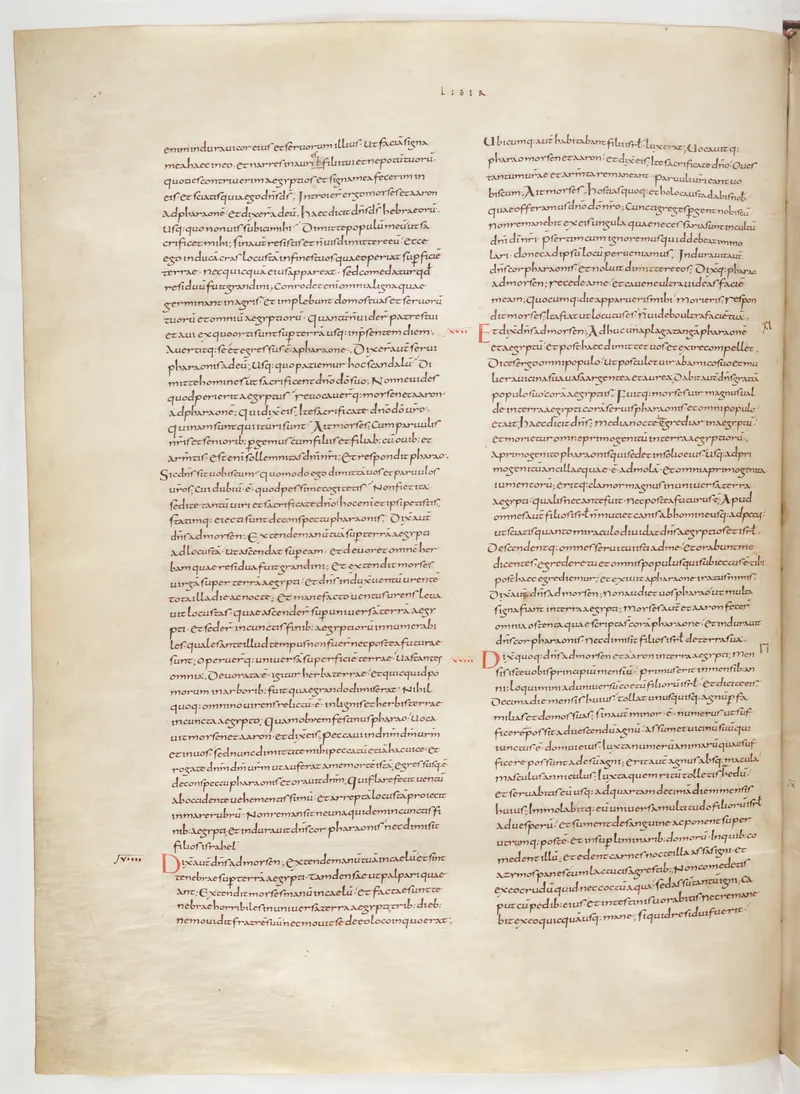 LIBER
enim induraui cor eius et seruorum illius. Ut faciā signa
mea haec in eo. et narres in aurib; filii tui et nepotū tuorū.
quotiens contriuerim aegyptios et signa mea fecerim in
eis et sciatis quia ego dn̄s. Introier̄ ergo moyses et aaron
ad pharaonē. et dixer̄ ad eū. Haec dicit dn̄s ds̄ hebraeorū.
Usq: quo non uis subici mihi. Dimitte populū meū ut sa
crificet mihi; sin aut̄ resistis et n̄ uis dimittere eū. ecce
ego inducā cras locustā in fines tuos quae operiat sup̄ficiē
terrae. nec quicquā eius appareat. sed comedatur qd̄
residuū fuit grandini; Conrodet enim omnia ligna quae
germinant in agris. et implebunt domos tuas et seruorū
tuorū et omniū aegyptiorū. Quantā n̄ uider̄ patres tui
et aui ex quo orti sunt sup̄ terrā usq: in p̄sentem diem.
Auertitq; sé et egressus ē a pharaone. Dixer̄ aut̄ serui
pharaonis ad eū. Usq: quo patiemur hoc scandalū. Di
mitte homines ut sacrificent dn̄o dō suo; Nonne uides
quod perierit aegyptus. reuocauer̄q: moysen et aaron
ad pharaonē; qui dix̄ eis. Ite sacrificate dn̄o dō ur̄o.
Quinam sunt qui ituri sunt. Ait moyses; Cum paruulis
nr̄is et seniorib: pgemus cum filiis et filiab: cū ouib: et
armtis. est enī sollemnitas dn̄i nr̄i; et respondit pharao.
Sic dn̄s sit uobiscum. quomodo ego dimittā uos et paruulos
ur̄os. cui dubiū ē. quod pessime cogitetis. Non fiet ita.
sed ite tantū uiri et sacrificate dn̄o. hoc enī et ipsi petistis.
statimq; eiecti sunt de conspectu pharaonis. Dix̄ aut̄
dn̄s ad moysen; Extende manū tuā sup̄ terrā aegypti
ad locustā. ut ascendat sup̄ eam. et deuoret omnē her
bam quae residua fuit grandini; et extendit moyses
uirgā super terrā aegypti. et dn̄s induxit uentū urentē
tota illa die ac nocte. et mane facto uentus urens leua
uit locustas quae ascender̄ sup̄ uniuersā terrā aegy
pti. et seder̄ in cunctis finib: aegyptiorū innumerabi
les. quales ante illud tempus non fuer̄ nec postea futurae
sunt; operuer̄q: uniuersā superficiē terrae. Uastantes
omnia. Deuorata ē igitur herba terrae. et quicquid po
morum in arborib; fuit quae grando dimiserat. Nihil
quoq: omnino uirens relictū ē in lignis et herbis terrae
in cuncta aegypto; Quamobrem festinus pharao uoca
uit moysen et aaron. et dix̄ eis. Peccaui in dn̄m dm̄ ur̄m
et in uos. sed nunc dimittite mihi peccatū etiā hac uice. et
rogate dn̄m dm̄ ur̄m ut auferat a me mortē istā. egressusq: ē
de conspectu pharaonis et orauit dn̄m. Qui flare fecit uentū
ab occidente uehementissimū. et arreptā locustā proiecit
in mare rubrū. Non remansit ne una quidem in cunctis fi
nib: aegypti. et indurauit dn̄s cor pharaonis nec dimisit
filios israhel.
xviiii
Dix̄ aut̄ dn̄s ad moysen; Extende manū tuā in caelū et sint
tenebrae sup̄ terrā aegypti. tam densae ut palpari quae
ant; Extendit moyses manū in caelū. et factae sunt te
nebrae horribiles in uniuersa terra aegypti trib: dieb:
nemo uidit fratrē suū nec mouit sé de loco in quo erat.
Ubicumq: aut̄ habitabant filii isrl̄. lux erat; Uocauitq:
pharao moysen et aaron. et dix̄ eis; Ite sacrificate dn̄o. Oues
tantum ur̄ae et armta remaneant. Paruuli ur̄i eant uo
biscum; Ait moyses. Hostias quoq: et holocausta dabis nob:
quae offeramus dn̄o dō nr̄o; Cuncti greges pgent nobiscū
non remanebit ex eis ungula quae necessaria sunt in cultū
dn̄i dī nr̄i. p̄sertim cum ignoremus quid debeat immo
lari. donec ad ipsū locū perueniamus; Indurauit aut̄
dn̄s cor pharaonis. et noluit dimittere eos. Dix̄q: pharao
ad moysen; recede a me. et caue ne ultra uideas faciē
meam; quocumq: die apparueris mihi morieris; respon
dit moyses; Ita fiat ut locutus es. n̄ uidebo ultra faciē tuā.
xvii
Et dix̄ dn̄s ad moysen; Adhuc una plaga tangā pharaonē
et aegyptū. et post haec dimittet uos et exire compellet.
Dices ergo omni populo. ut postulet uir ab amico suo et mu
lier a uicina sua uasa argentea et aurea. Dabit aut̄ dn̄s gratiā
populo suo corā aegyptiis. Fuitq: moyses uir magnus ual
de in terra aegypti corā seruis pharaonis et omni populo
et ait. Haec dicit dn̄s; media nocte egrediar in aegyptū.
et morietur omne primogenitū in terra aegyptiorū.
A primogenito pharaonis qui sedet in solio eius. Usq: ad pri
mogenitū ancillae quae ē ad molā. et omnia primogenita
iumentorū; eritq: clamor magnus in uniuersa terra
aegypti. qualis nec ante fuit. nec postea futurus ē. Apud
omnes aut̄ filios isrl̄ n̄ muttiet canis ab homine usq: ad pecq;
ut sciatis quanto miraculo diuidat dn̄s aegyptios et isrl̄.
Descendentq: omnes serui tui isti ad me. et orabunt me
dicentes. egredere tu et omnis populus qui subiectus ē tibi
post haec egrediemur; et exiuit a pharaone iratus nimis.
Dix̄ aut̄ dn̄s ad moysen; Non audiet uos pharao ut multa
signa fiant in terra aegypti; moyses aut̄ et aaron fecer̄
omnia ostenta quae scripta s̄ corā pharaone. et indurauit
dn̄s cor pharaonis. nec dimisit filios isrl̄ de terra sua.
xviii
Dix̄ quoq: dn̄s ad moysen et aaron in terra aegypti; men
sis iste uobis principiū mensiū. primus erit in mensib: an
ni; loquimini ad uniuersū coetū filiorū isrl̄. et dicite eis;
Decima die mensis huius. tollat unusquisq: agnū p̄ fa
milias et domos suas; sin aut̄ minor ē numerus ut suf
ficere possit ad uescendū agnū. assumet uicinū suū qui
iunctus ē domui eius. iuxta numerū animarū quae suf
ficere possunt ad esū agni; erit aut̄ agnus absq: macula
masculus anniculus; iuxta quem ritū tolletis hedū.
et seruabitis eū usq: ad quartam decimā diem mensis
huius; Immolabitq: eū uniuersa multitudo filiorū isrl̄
ad uesperū. et sument de sanguine ac ponent super
utrumq: postē. et in sup̄liminarib: domorū. In quib: co
medent illū; et edent carnes nocte illa assas igni. et
azymos panes cum lactucis agrestib; Non comedetis
ex eo crudū quid nec coctū aqua. sed assū tantū igni. Ca
put cū pedib: eius et intestinis uorabitis nec remane
bit ex eo quicquā usq: mane; si quid residui fuerit.